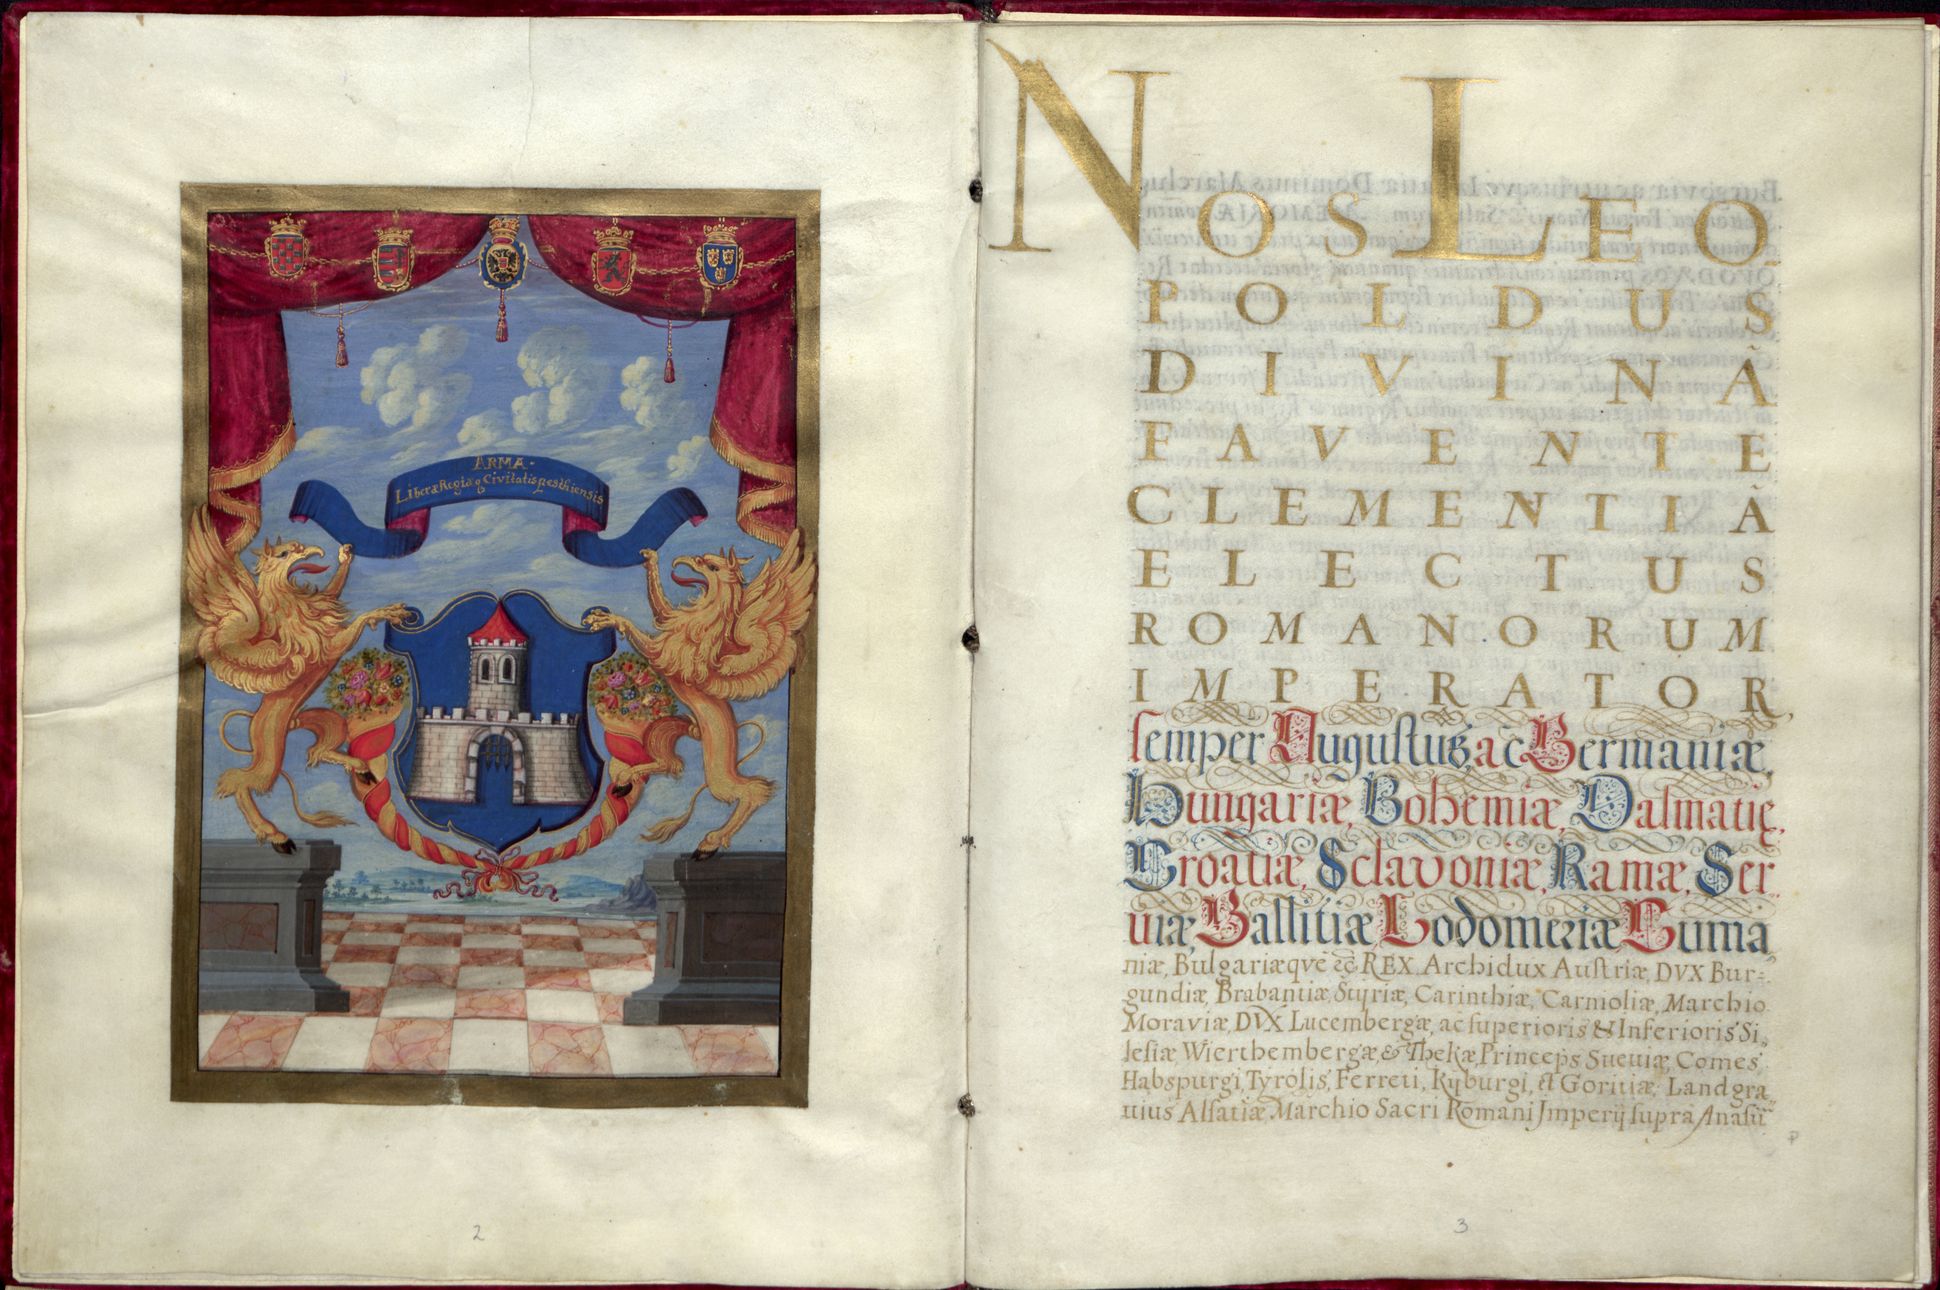 ARMA
Liberæ Regiæq Civitatis pesthiensis
2
NOS LEO
POLDUS
DIVINÃ
FAVENTE
CLEMENTIÃ
ELECTUS
ROMANORUM
IMPERATOR,
semper Augustus, ac Germaniæ,
Hungariæ, Bohemiæ, Dalmatię,
Croatiæ, Sclavoniæ, Ramæ, Ser
uiæ, Gallitiæ, Lodomeriæ Cuma
niæ, Bulgariæqve &c REX. Archidux Austriæ, DVX Bur=
gundiæ, Brabantiæ, Styriæ, Carinthiæ, Carnioliæ, Marchio
Moraviæ, DVX Lucembergæ, ac superioris & Inferioris Si,
lesiæ, Wierthembergæ, & Thekæ, Princeps Sueuiæ, Comes
Habspurgi, Tyrolis, Ferreti, Kyburgi, et Goritiæ, Landgra,
uius Alsatiæ, Marchio Sacri Romani Imperij supra Anasũ
3